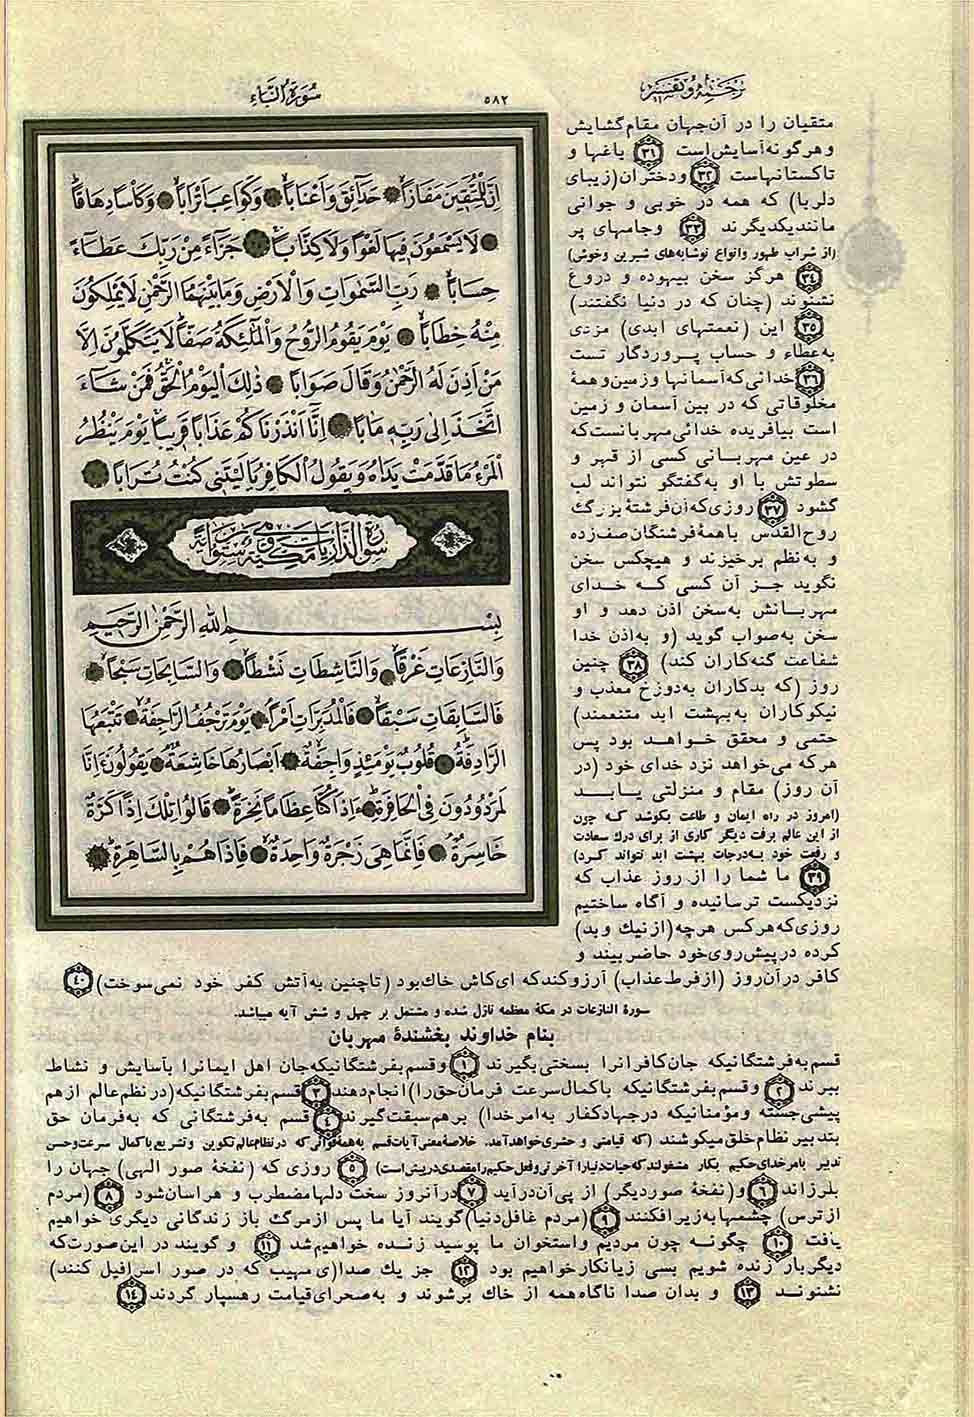 ترجمه و تفسیر
۵۸۲
سورة النباء
اِنَّ لِلْمُتَّقینَ مَفازاً حَدآئِقَ وَاَعْناباً وَکَواعِبَ اَتْراباً وَکَأْساً دِهاقاً
لا یَسْمَعُونَ فیها لَغْواً وَلا کِذّاباً جَزآءً مِنْ رَبِّكَ عَطآءً
حِساباً رَبِّ السَّمٰواتِ وَالْاَرْضِ وَما بَیْنَهُمَا الرَّحْمٰنِ لا یَمْلِکُونَ
مِنْهُ خِطاباً یَوْمَ یَقُومُ الرُّوحُ وَالْمَلٰئِکَةُ صَفّاً لا یَتَکَلَّمُونَ اِلّا
مَنْ اَذِنَ لَهُ الرَّحْمٰنُ وَقالَ صَواباً ذٰلِكَ الْیَوْمُ الْحَقُّ فَمَنْ شآءَ
اتَّخَذَ اِلٰی رَبِّهِ مَاٰباً اِنّا اَنْذَرْناکُمْ عَذاباً قَریباً یَوْمَ یَنْظُرُ
الْمَرْءُ ما قَدَّمَتْ یَداهُ وَیَقُولُ الْکافِرُ یا لَیْتَنی کُنْتُ تُراباً
بِسْمِ اللهِ الرَّحْمٰنِ الرَّحیمِ
وَالنّازِعاتِ غَرْقاً وَالنّاشِطاتِ نَشْطاً وَالسّابِحاتِ سَبْحاً
فَالسّابِقاتِ سَبْقاً فَالْمُدَبِّراتِ اَمْراً یَوْمَ تَرْجُفُ الرّاجِفَةُ تَتْبَعُهَا
الرّادِفَةُ قُلُوبٌ یَوْمَئِذٍ واجِفَةٌ اَبْصارُها خاشِعَةٌ یَقُولُونَ ءَاِنّا
لَمَرْدُودُونَ فِی الْحافِرَةِ ءَاِذا کُنّا عِظاماً نَخِرَةً قالُوا تِلْكَ اِذاً کَرَّةٌ
خاسِرَةٌ فَاِنَّما هِیَ زَجْرَةٌ واحِدَةٌ فَاِذا هُمْ بِالسّاهِرَةِ
متقیان را در آن جهان مقام گشایش
و هر گونه آسایش است ۳۱ باغها و
تاکستانهاست ۳۲ و دختران (زیبای
دلربا) که همه در خوبی و جوانی
مانند یکدیگرند ۳۳ و جامهای پر
(از شراب طهور وانواع نوشابه‌های شیرین وخوش)
۳۴ هرگز سخن بیهوده و دروغ
نشنوند (چنان که در دنیا نگفتند)
۳۵ این (نعمتهای ابدی) مزدی
به عطاء و حساب پروردگار تست
۳۶ خدائی که آسمانها و زمین و همهٔ
مخلوقاتی که در بین آسمان و زمین
است بیافریده خدائی مهربانست که
در عین مهربانی کسی از قهر و
سطوتش با او به گفتگو نتواند لب
گشود ۳۷ روزی که آن فرشتهٔ بزرگ
روح القدس با همهٔ فرشتگان صف زده
و به نظم برخیزند و هیچکس سخن
نگوید جز آن کسی که خدای
مهربانش به سخن اذن دهد و او
سخن به صواب گوید (و به اذن خدا
شفاعت گنه کاران کند) ۳۸ چنین
روز (که بدکاران به دوزخ معذب و
نیکوکاران به بهشت ابد متنعمند)
حتمی و محقق خواهد بود پس
هر که می‌خواهد نزد خدای خود (در
آن روز) مقام و منزلتی یابد
(امروز در راه ایمان و طاعت بکوشد که چون
از این عالم برفت دیگر کاری از برای درك سعادت
و رفعت خود به درجات بهشت ابد نتواند کرد)
۳۹ ما شما را از روز عذاب که
نزدیکست ترسانیده و آگاه ساختیم
روزی که هر کس هر چه (از نیك و بد)
کرده در پیش روی خود حاضر بیند و
کافر در آن روز (از فرط عذاب) آرزو کند که ای کاش خاك بود (تا چنین به آتش کفر خود نمی‌سوخت) ۴۰
سورهٔ النازعات در مکهٔ معظمه نازل شده و مشتمل بر چهل و شش آیه میباشد.
بنام خداوند بخشندهٔ مهربان
قسم به فرشتگانیکه جان کافرانرا بسختی بگیرند ۱ و قسم بفرشتگانیکه جان اهل ایمانرا بآسایش و نشاط
ببرند ۲ و قسم بفرشتگانیکه با کمال سرعت فرمان حق را) انجام دهند ۳ قسم بفرشتگانیکه (در نظم عالم از هم
پیشی جسته و مؤمنانیکه در جهاد کفار به امر خدا) بر هم سبقت گیرند ۴ قسم به فرشتگانی که به فرمان حق
بتدبیر نظام خلق میکوشند (که قیامتی و حشری خواهد آمد. خلاصه معنی آیات قسم به همه قوائی که در نظام عالم تکوین و تشریع با کمال سرعت و حسن
تدبیر بامر خدای حکیم بکار مشغولند که حیات دنیا را آخرتی و فعل حکیم را مقصدی در پیش است) ۵ روزی که (نفخهٔ صور الهی) جهان را
بلرزاند ۶ و (نفخهٔ صور دیگر) از پی آن در آید ۷ در آنروز سخت دلها مضطرب و هراسان شود ۸ (مردم
از ترس) چشمها به زیر افکنند ۹ (مردم غافل دنیا) گویند آیا ما پس از مرگ باز زندگانی دیگری خواهیم
یافت ۱۰ چگونه چون مردیم و استخوان ما پوسید زنده خواهیم شد ۱۱ و گویند در این صورت که
دیگر بار زنده شویم بسی زیانکار خواهیم بود ۱۲ جز یك صدا (ی مهیب که در صور اسرافیل کنند)
نشنوند ۱۳ و بدان صدا ناگاه همه از خاك برشوند و به صحرای قیامت رهسپار گردند ۱۴